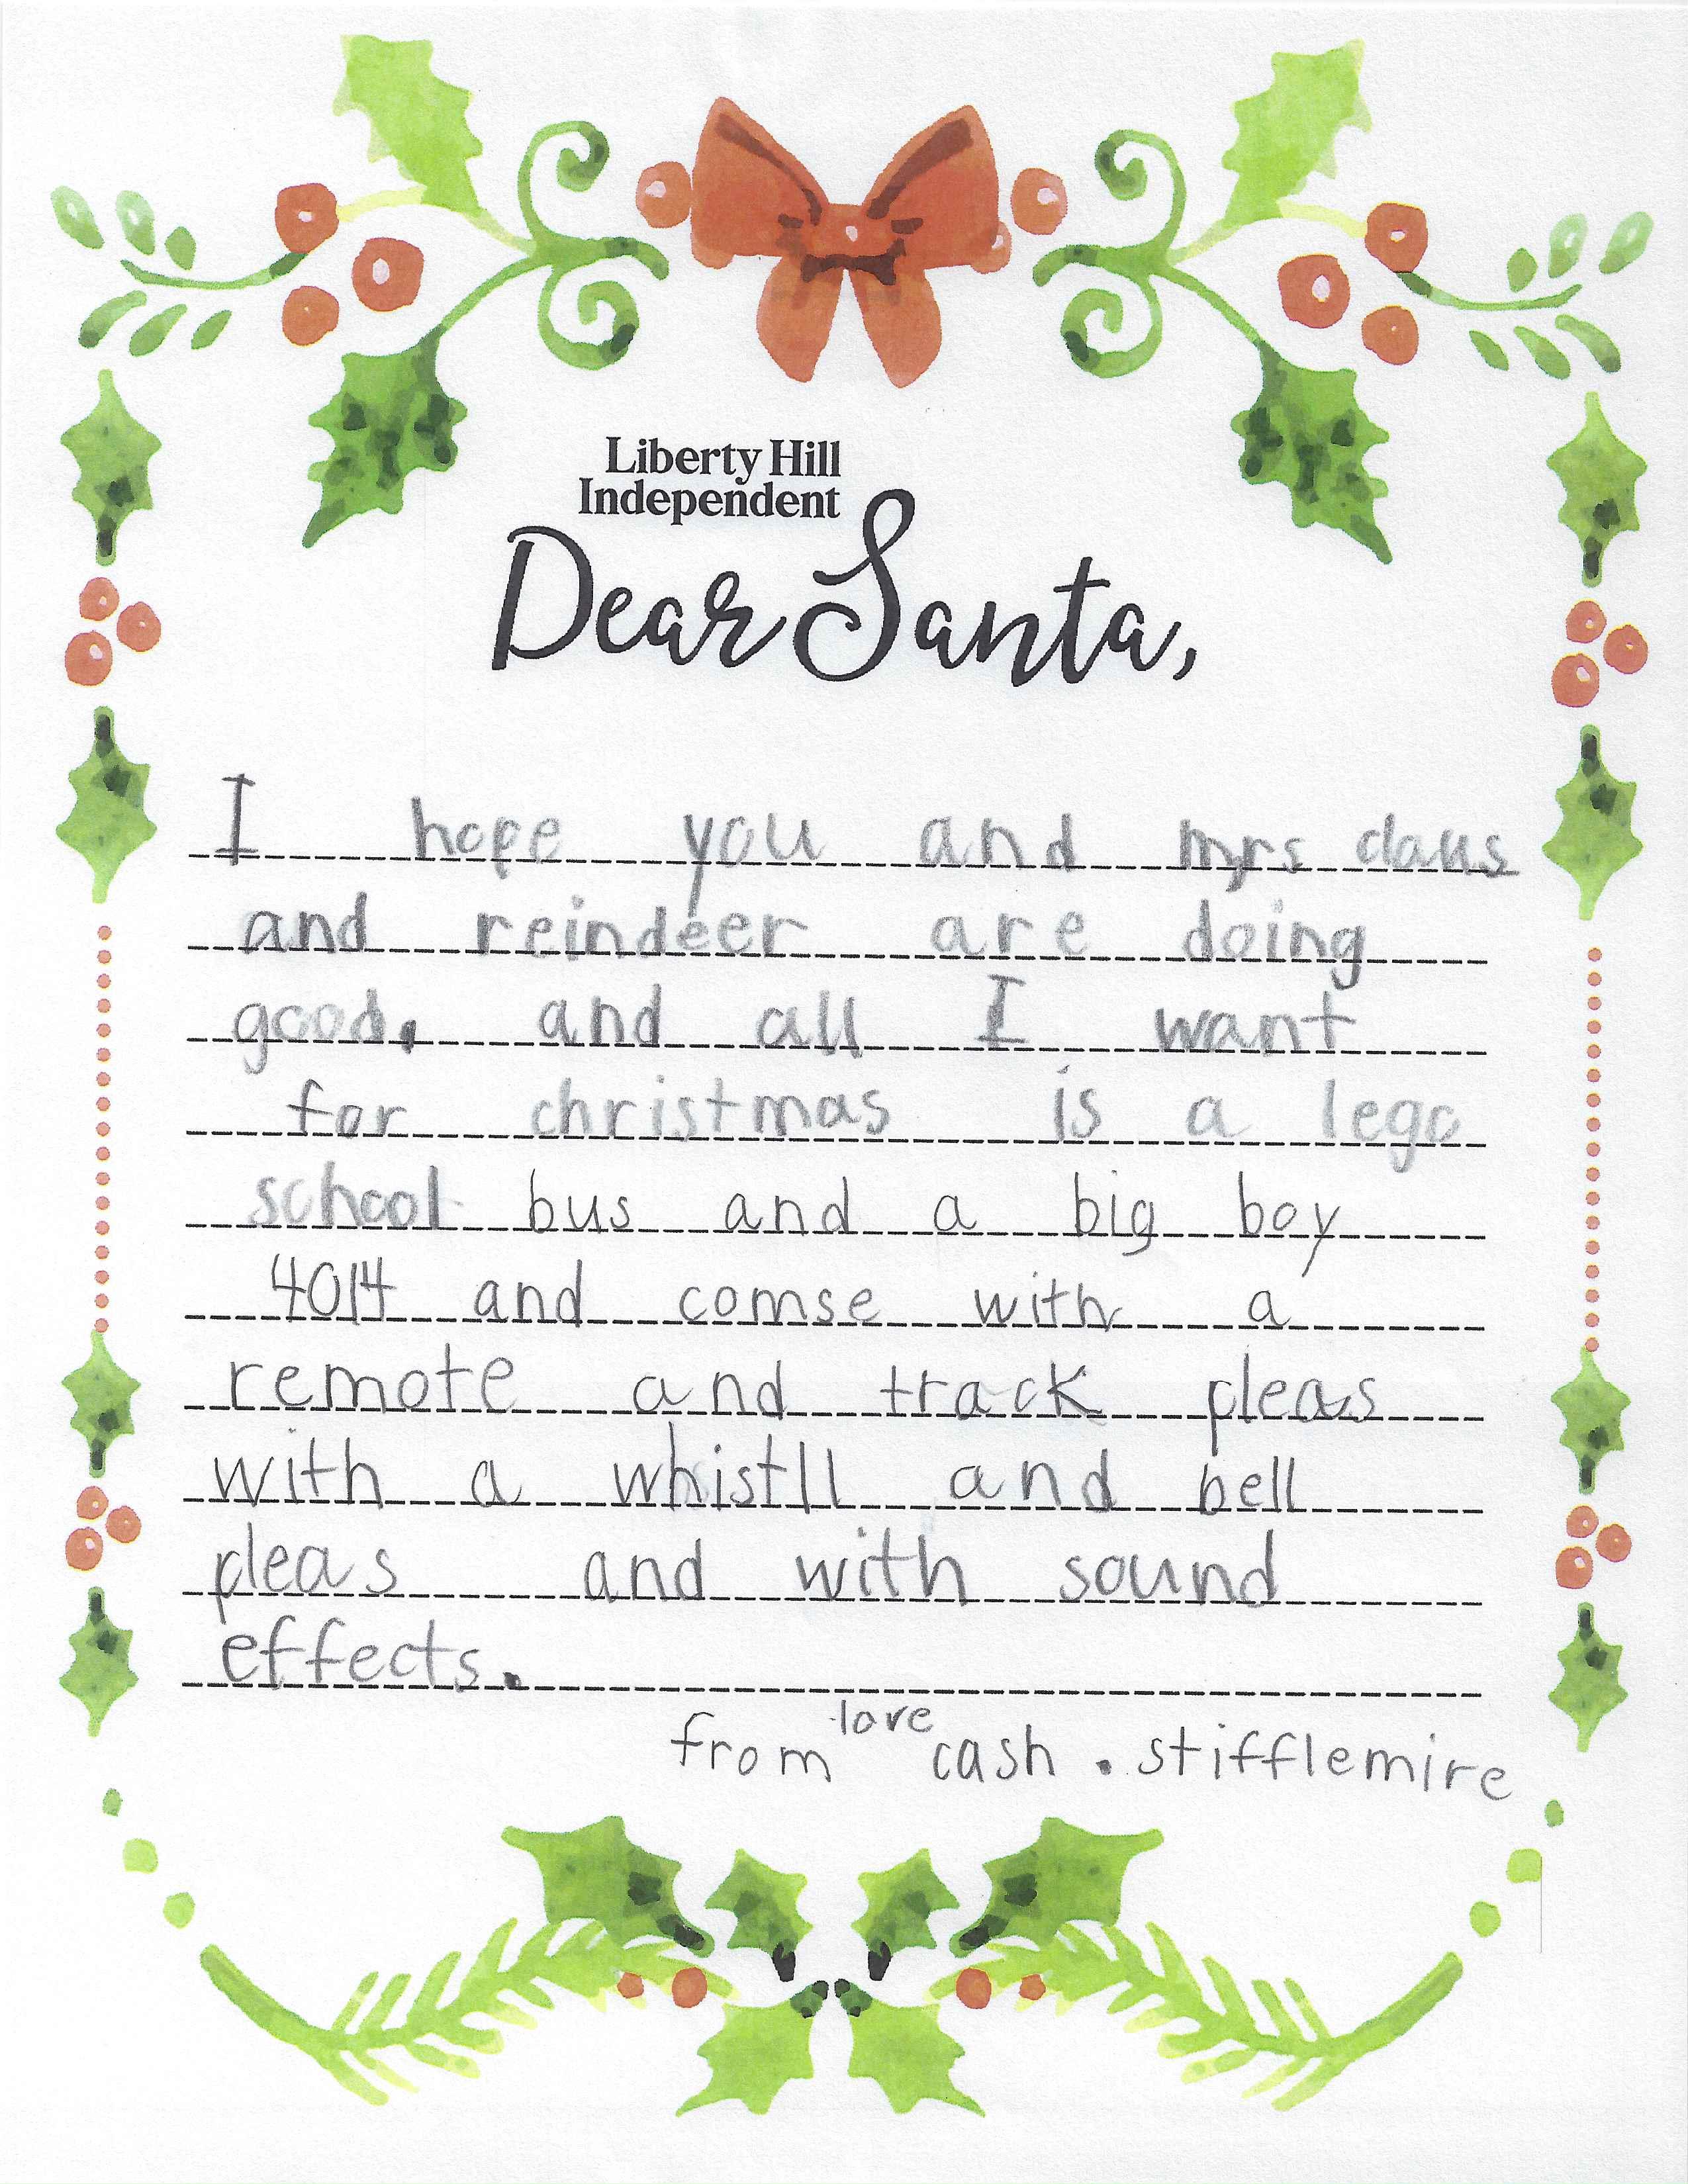 Liberty Hill
Independent
Dear Santa,
I hope you and mrs claus
and reindeer are doing
good. and all I want
for christmas is a lego
school bus and a big boy
4014 and comse with a
remote and track pleas
with a whistll and bell
pleas and with sound
effects.
love
from cash . stifflemire